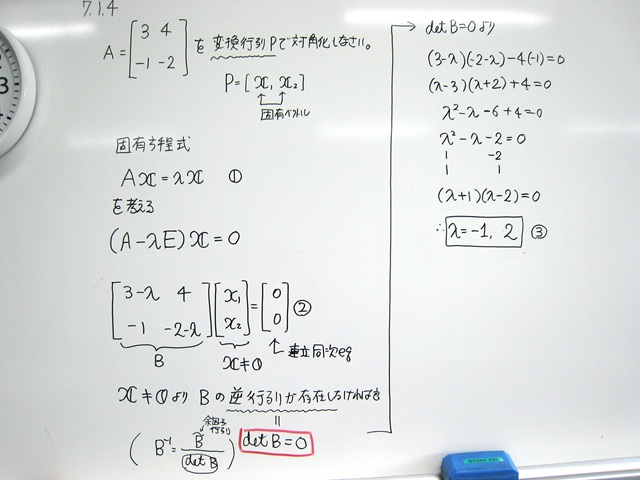 7.1.4
A = [3 4
-1 -2] を変換行列Pで対角化しなさい。
P = [x₁ x₂]
固有ベクトル
固有方程式
Ax = λx ①
を考える
(A-λE)x = 0
[3-λ 4
-1 -2-λ] [x₁
x₂] = [0
0] ②
B
x≠0
連立同次eq
x≠0より Bの逆行列が存在しなければよい
=
(B⁻¹ = B̃/detB)
余因子行列
detB = 0
detB=0より
(3-λ)(-2-λ)-4(-1)=0
(λ-3)(λ+2)+4=0
λ²-λ-6+4=0
λ²-λ-2=0
1 -2
1 1
(λ+1)(λ-2)=0
∴ λ=-1, 2 ③
3